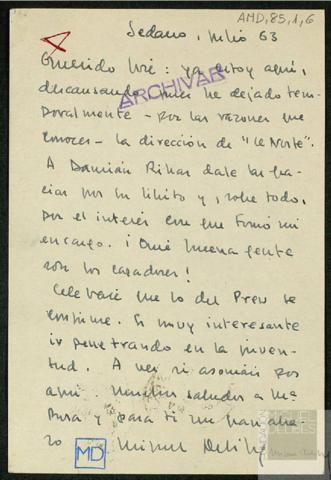 AMD,85,1,6
Sedano, julio 63
Querido José: ya estoy aquí,
descansando, pues he dejado tem-
poralmente - por las razones que
conoces - la dirección de "El Norte".
ARCHIVAR
A Damián dale las gra-
cias por su librito y, sobre todo,
por el interés con que tomó mi
encargo. ¡Qué buena gente
son los cazadores!
Celebraré que lo del Preu se
confirme. Es muy interesante
ir penetrando en la juven-
tud. A ver si asomáis por
aquí. Muchos saludos a Mª
Pura y para ti un gran abra-
zo
Miguel Delibes
MD
FUNDACIÓN
MIGUEL
DELIBES